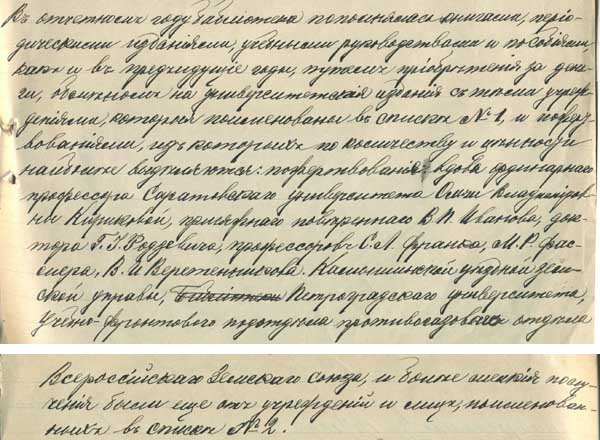 Въ отчетномъ году библіотека пополнялась книгами, періо-
дическими изданіями, учебными руководствами и пособіями,
какъ и въ предыдущіе годы, путемъ пріобрѣтенія за день-
ги, обмѣномъ на университетскія изданія съ тѣми учреж-
деніями, которыя поименованы въ спискѣ № 1, и пожерт-
вованіями, изъ которыхъ по количеству и цѣнности
наиболѣе выдѣляются: пожертвованія вдовы ординарнаго
профессора Саратовскаго университета Ольги Владимиров-
ны Кириковой, присяжнаго повѣреннаго В. П. Иванова, док-
тора Г. І. Роддевича, профессоровъ С. Л. Франка, М. Р. Фас-
мера, В. И. Веретенникова. Камышинской уѣздной зем-
ской управы, Петроградскаго университета,
Учебно-фронтового подотдѣла противогазоваго отдѣла
Всероссійскаго Земскаго союза, и болѣе мелкія полу-
ченія были еще отъ учрежденій и лицъ, поименован-
ныхъ въ спискѣ № 2.